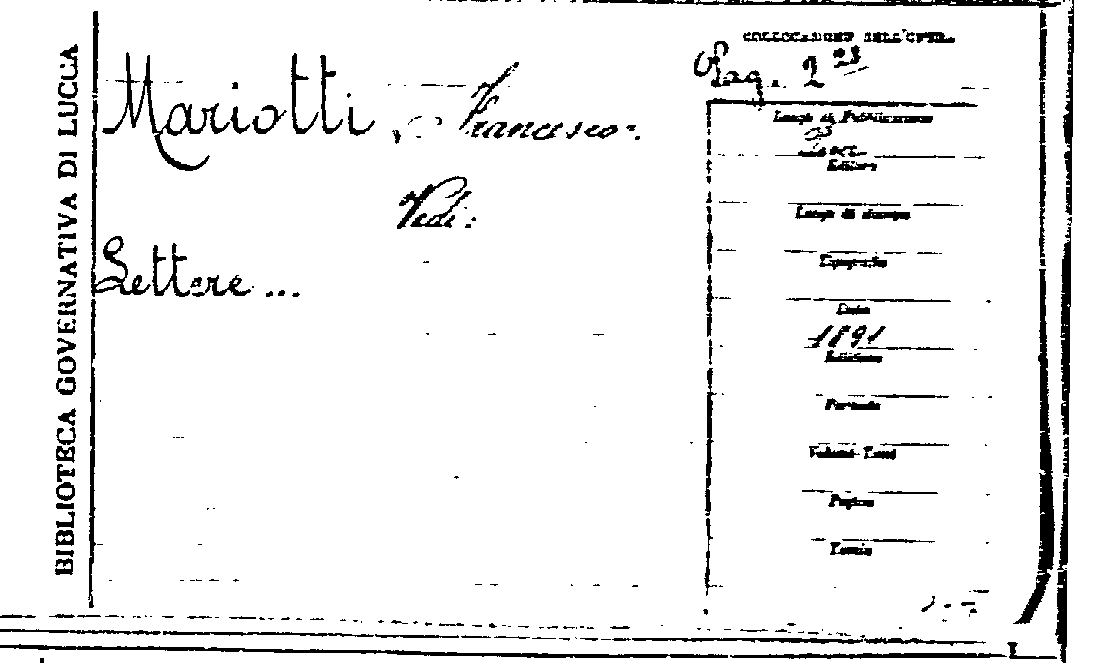 BIBLIOTECA GOVERNATIVA DI LUCCA
Mariotti, Francesco.
Vedi:
Lettere ...
COLLOCAZIONE DELL'OPERA
Pag. 2 23
Luogo di Pubblicazione
Editore
Luogo di stampa
Tipografia
Data
1891
Edizione
Formato
Volumi-Tomi
Pagine
Tomia